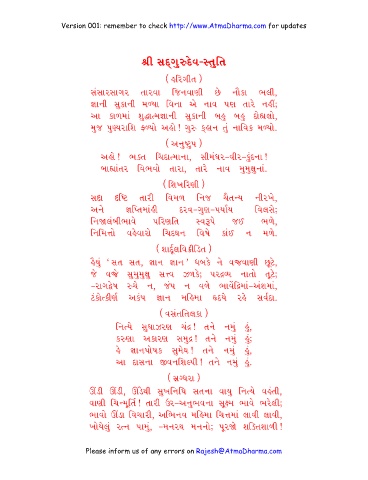 Version 001: remember to check http://www.AtmaDharma.com for updates
શ્રી સદ્ગુરુદેવ-સ્તુતિ
(હરિગીત)
સંસારસાગર તારવા જિનવાણી છે નૌકા ભલી,
જ્ઞાની સુકાની મળ્યા વિના એ નાવ પણ તારે નહીં;
આ કાળમાં શુદ્ધાત્મજ્ઞાની સુકાની બહુ બહુ દોહ્યલો,
મુજ પુણ્યરાશિ ફળ્યો અહો! ગુરુ ક્હાન તું નાવિક મળ્યો.
(અનુષ્ટુપ)
અહો! ભક્ત ચિદાત્માના, સીમંધર-વીર-કુંદના!
બાહ્યાંતર વિભવો તારા, તારે નાવ મુમુક્ષુનાં.
(શિખરિણી)
સદા દષ્ટિ તારી વિમળ નિજ ચૈતન્ય નીરખે,
અને જ્ઞપ્તિમાંહી દરવ-ગુણ-પર્યાય વિલસે;
નિજાલંબીભાવે પરિણતિ સ્વરૂપે જઈ ભળે,
નિમિત્તો વહેવારો ચિદઘન વિષે કાંઈ ન મળે.
(શાર્દૂલવિક્રીડિત)
હૈયું 'સત સત, જ્ઞાન જ્ઞાન' ધબકે ને વજ્રવાણી છૂટે,
જે વજ્રે સુમુમુક્ષુ સત્ત્વ ઝળકે; પરદ્રવ્ય નાતો તૂટે;
-રાગદ્વેષ રુચે ન, જંપ ન વળે ભાવેંદ્રિમાં-અંશમાં,
ટંકોત્કીર્ણ અકંપ જ્ઞાન મહિમા હૃદયે રહે સર્વદા.
(વસંતતિલકા)
નિત્યે સુધાઝરણ ચંદ્ર! તને નમું હું,
કરુણા અકારણ સમુદ્ર! તને નમું હું;
હે જ્ઞાનપોષક સુમેઘ! તને નમું હું,
આ દાસના જીવનશિલ્પી! તને નમું હું.
(સ્રગ્ધરા)
ઊંડી ઊંડી, ઊંડેથી સુખનિધિ સતના વાયુ નિત્યે વહંતી,
વાણી ચિન્મૂર્તિ! તારી ઉર-અનુભવના સૂક્ષ્મ ભાવે ભરેલી;
ભાવો ઊંડા વિચારી, અભિનવ મહિમા ચિત્તમાં લાવી લાવી,
ખોયેલું રત્ન પામું, -મનરથ મનનો; પૂરજો શક્તિશાળી!
Please inform us of any errors on Rajesh@AtmaDharma.com